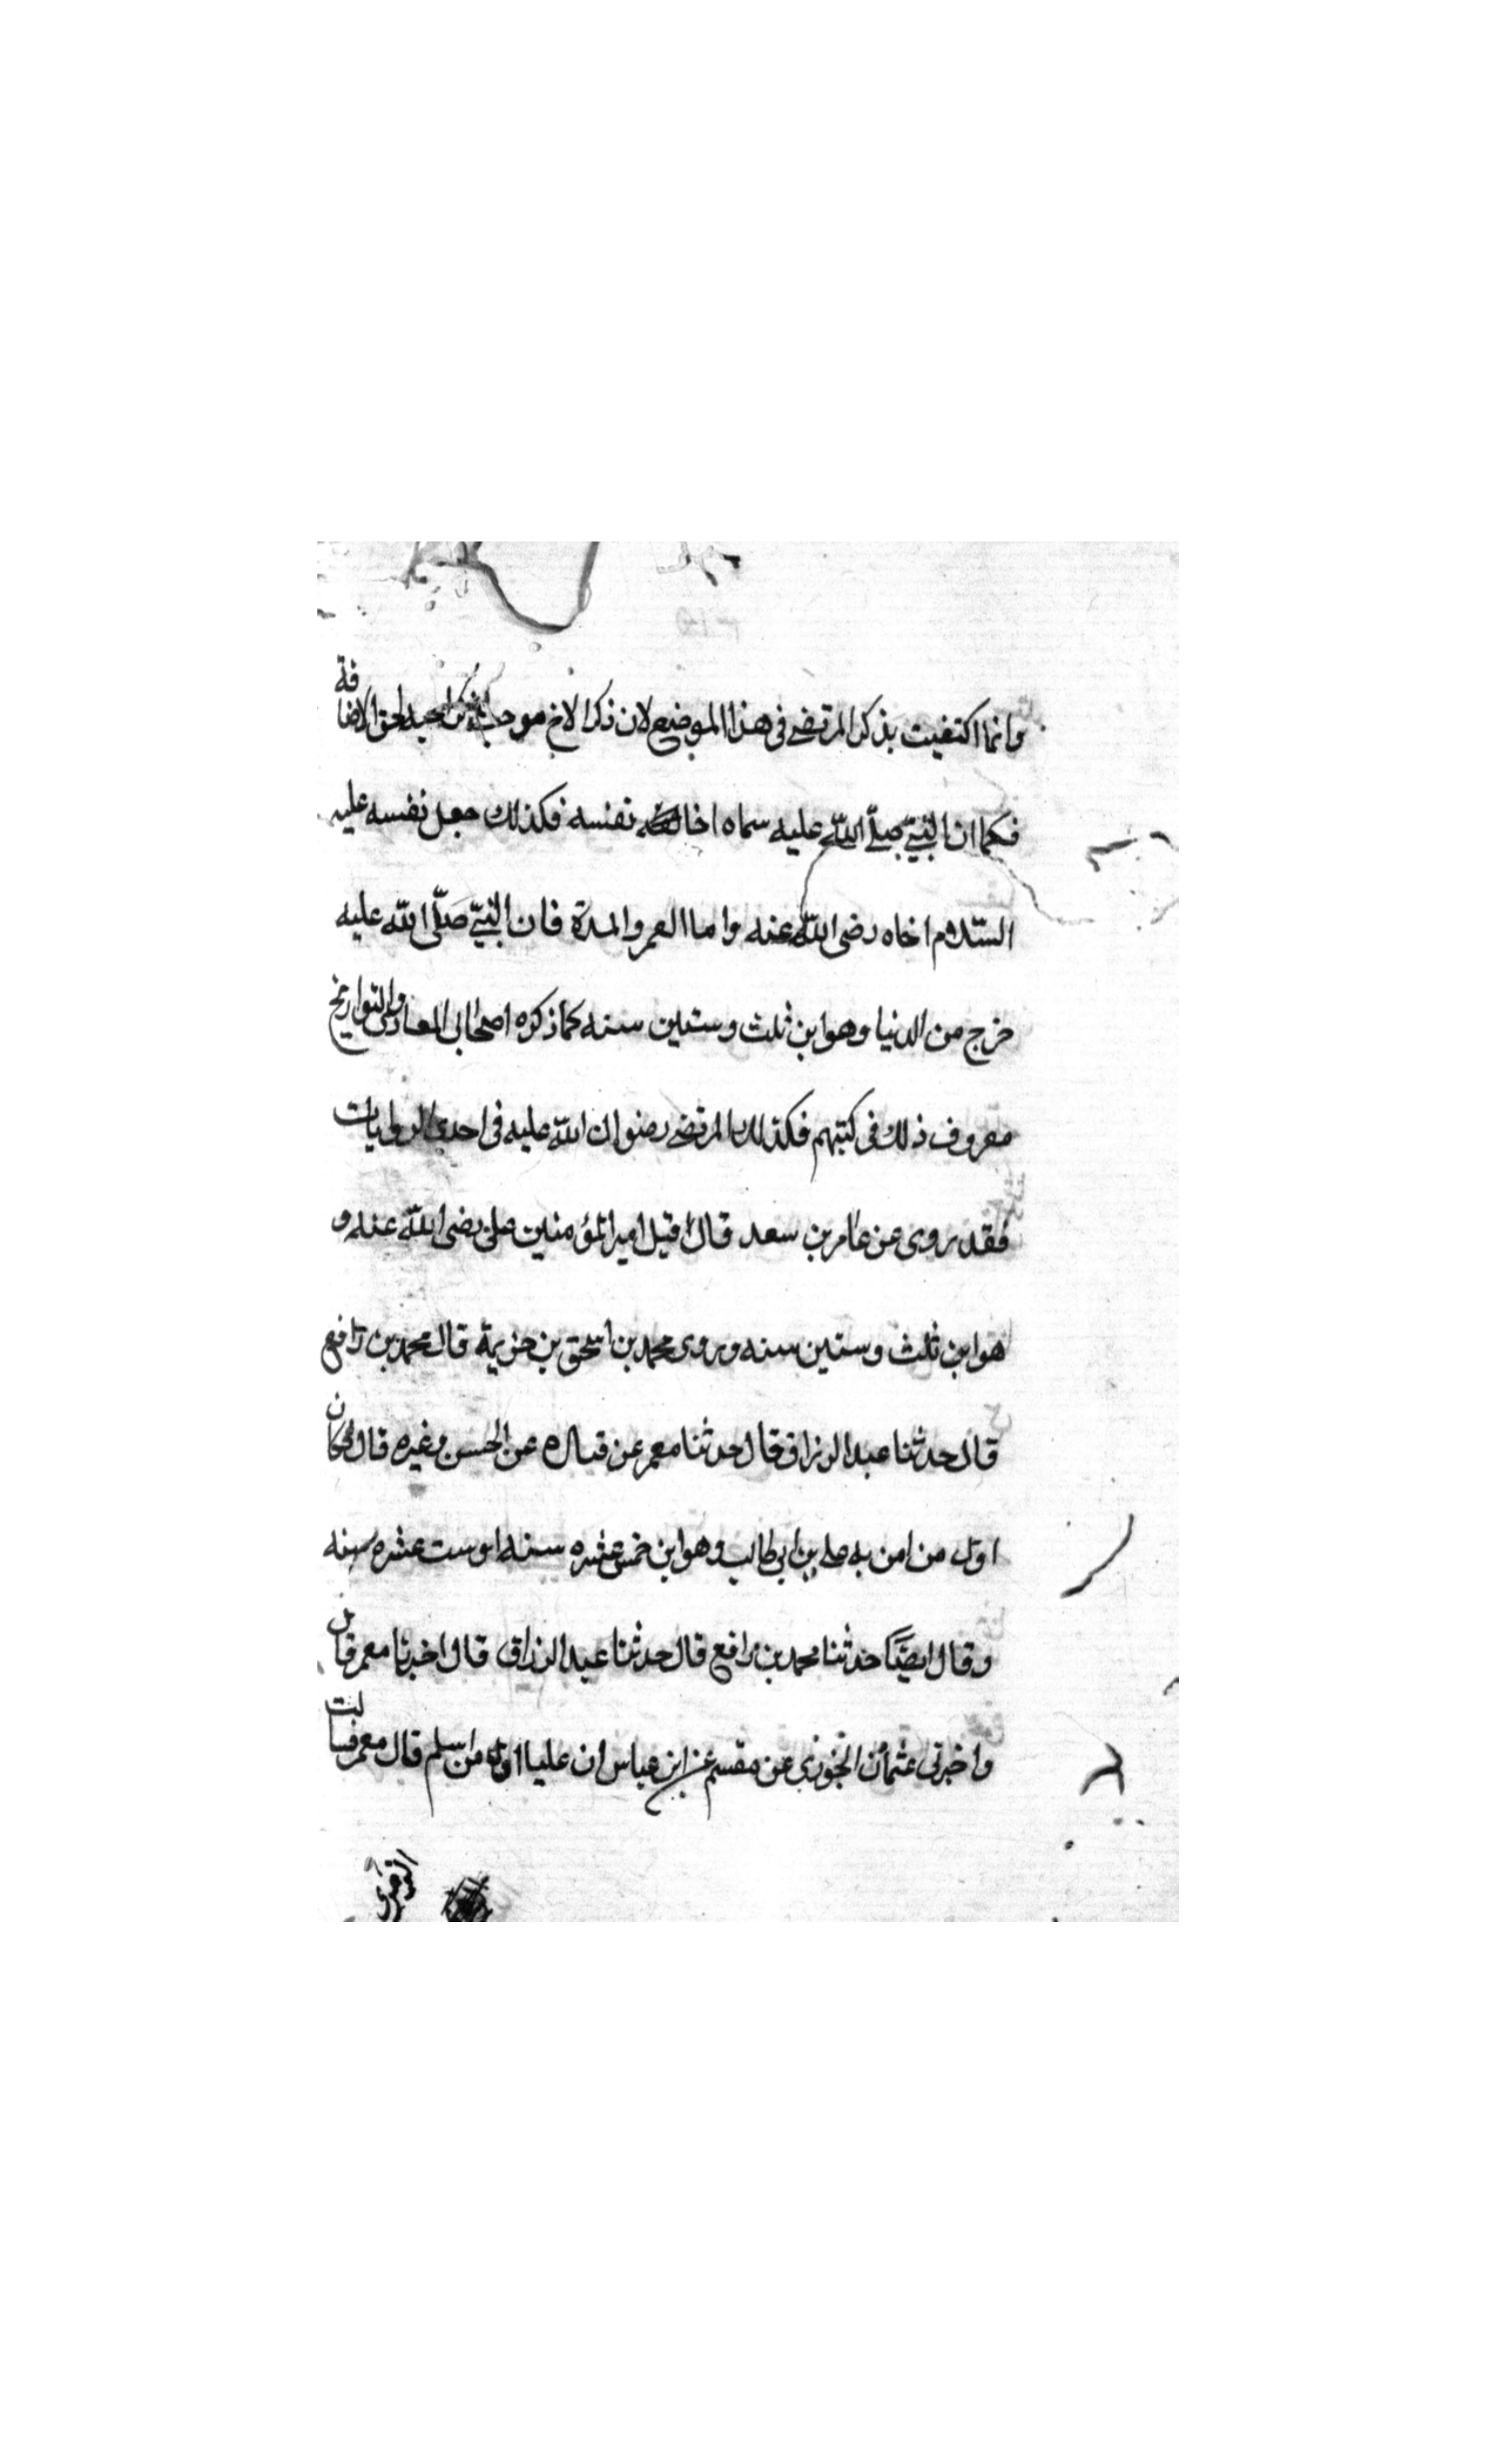 وانما اكتفيت بذكر المرتضى فى هذا الموضع لان ذكر الاخ موجب ذكر اخيه لحق الاضافة
فكما ان النبىّ صلّى اللّه عليه سماه اخا نفسه فكذلك جعل نفسه عليه
السّلام اخاه رضى اللّه عنه واما العمر والمدة فان النبىّ صلّى اللّه عليه
خرج من الدنيا وهو ابن ثلث وستين سنه كما ذكره اصحاب المغازى والتواريخ
معروف ذلك فى كتبهم فكذلك المرتضى رضوان اللّه عليه فى احدى الروايات
فقد روى عن عامر بن سعد قال قتل امير المؤمنين على رضى اللّه عنه و
هو ابن ثلث وستين سنه وروى محمد بن اسحق بن خزيمة قال محمد بن رافع
قال حدثنا عبد الرزاق قال حدثنا معمر عن قتاده عن الحسن وغيره قال فكان
اول من امن به على بن ابى طالب وهو ابن خمس عشره سنه او ست عشره سنه
وقال ايضًا حدثنا محمد بن رافع قال حدثنا عبد الرزاق قال اخبرنا معمر قال
واخبرنى عثمان الجزرى عن مقسم عن ابن عباس ان عليا اول من اسلم قال معمر فسالت
الزهرى